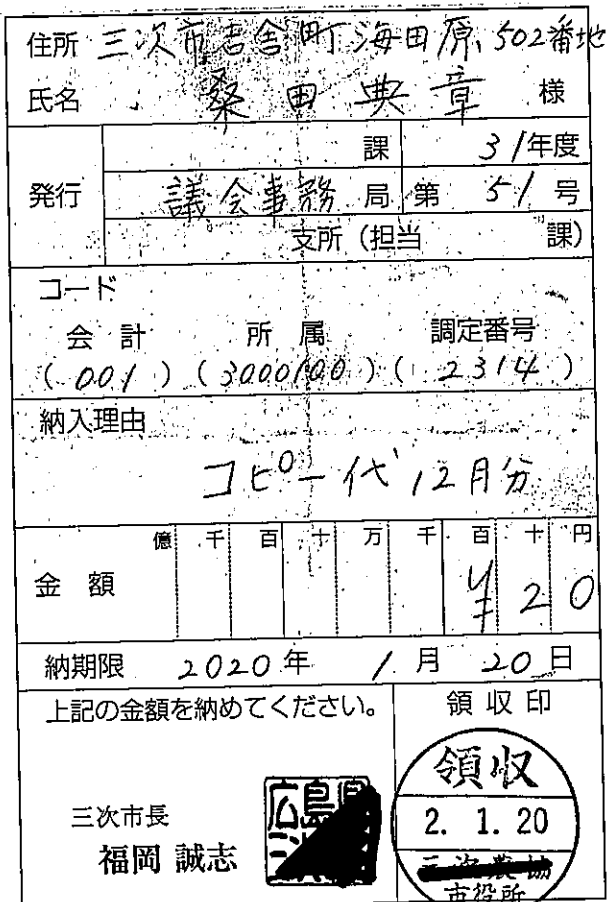 住所 三次市吉舎町海田原502番地
氏名 桑田典章 様
発行
課 31年度
議会事務局 第51号
支所(担当 課)
コード
会計 所属 調定番号
(001)(3000100)(2314)
納入理由
コピー代12月分
億 千 百 十 万 千 百 十 円
金額 ¥20
納期限 2020年 1月 20日
上記の金額を納めてください。
領収印
三次市長
福岡 誠志
広島県
領収
2. 1. 20
三次農協
市役所